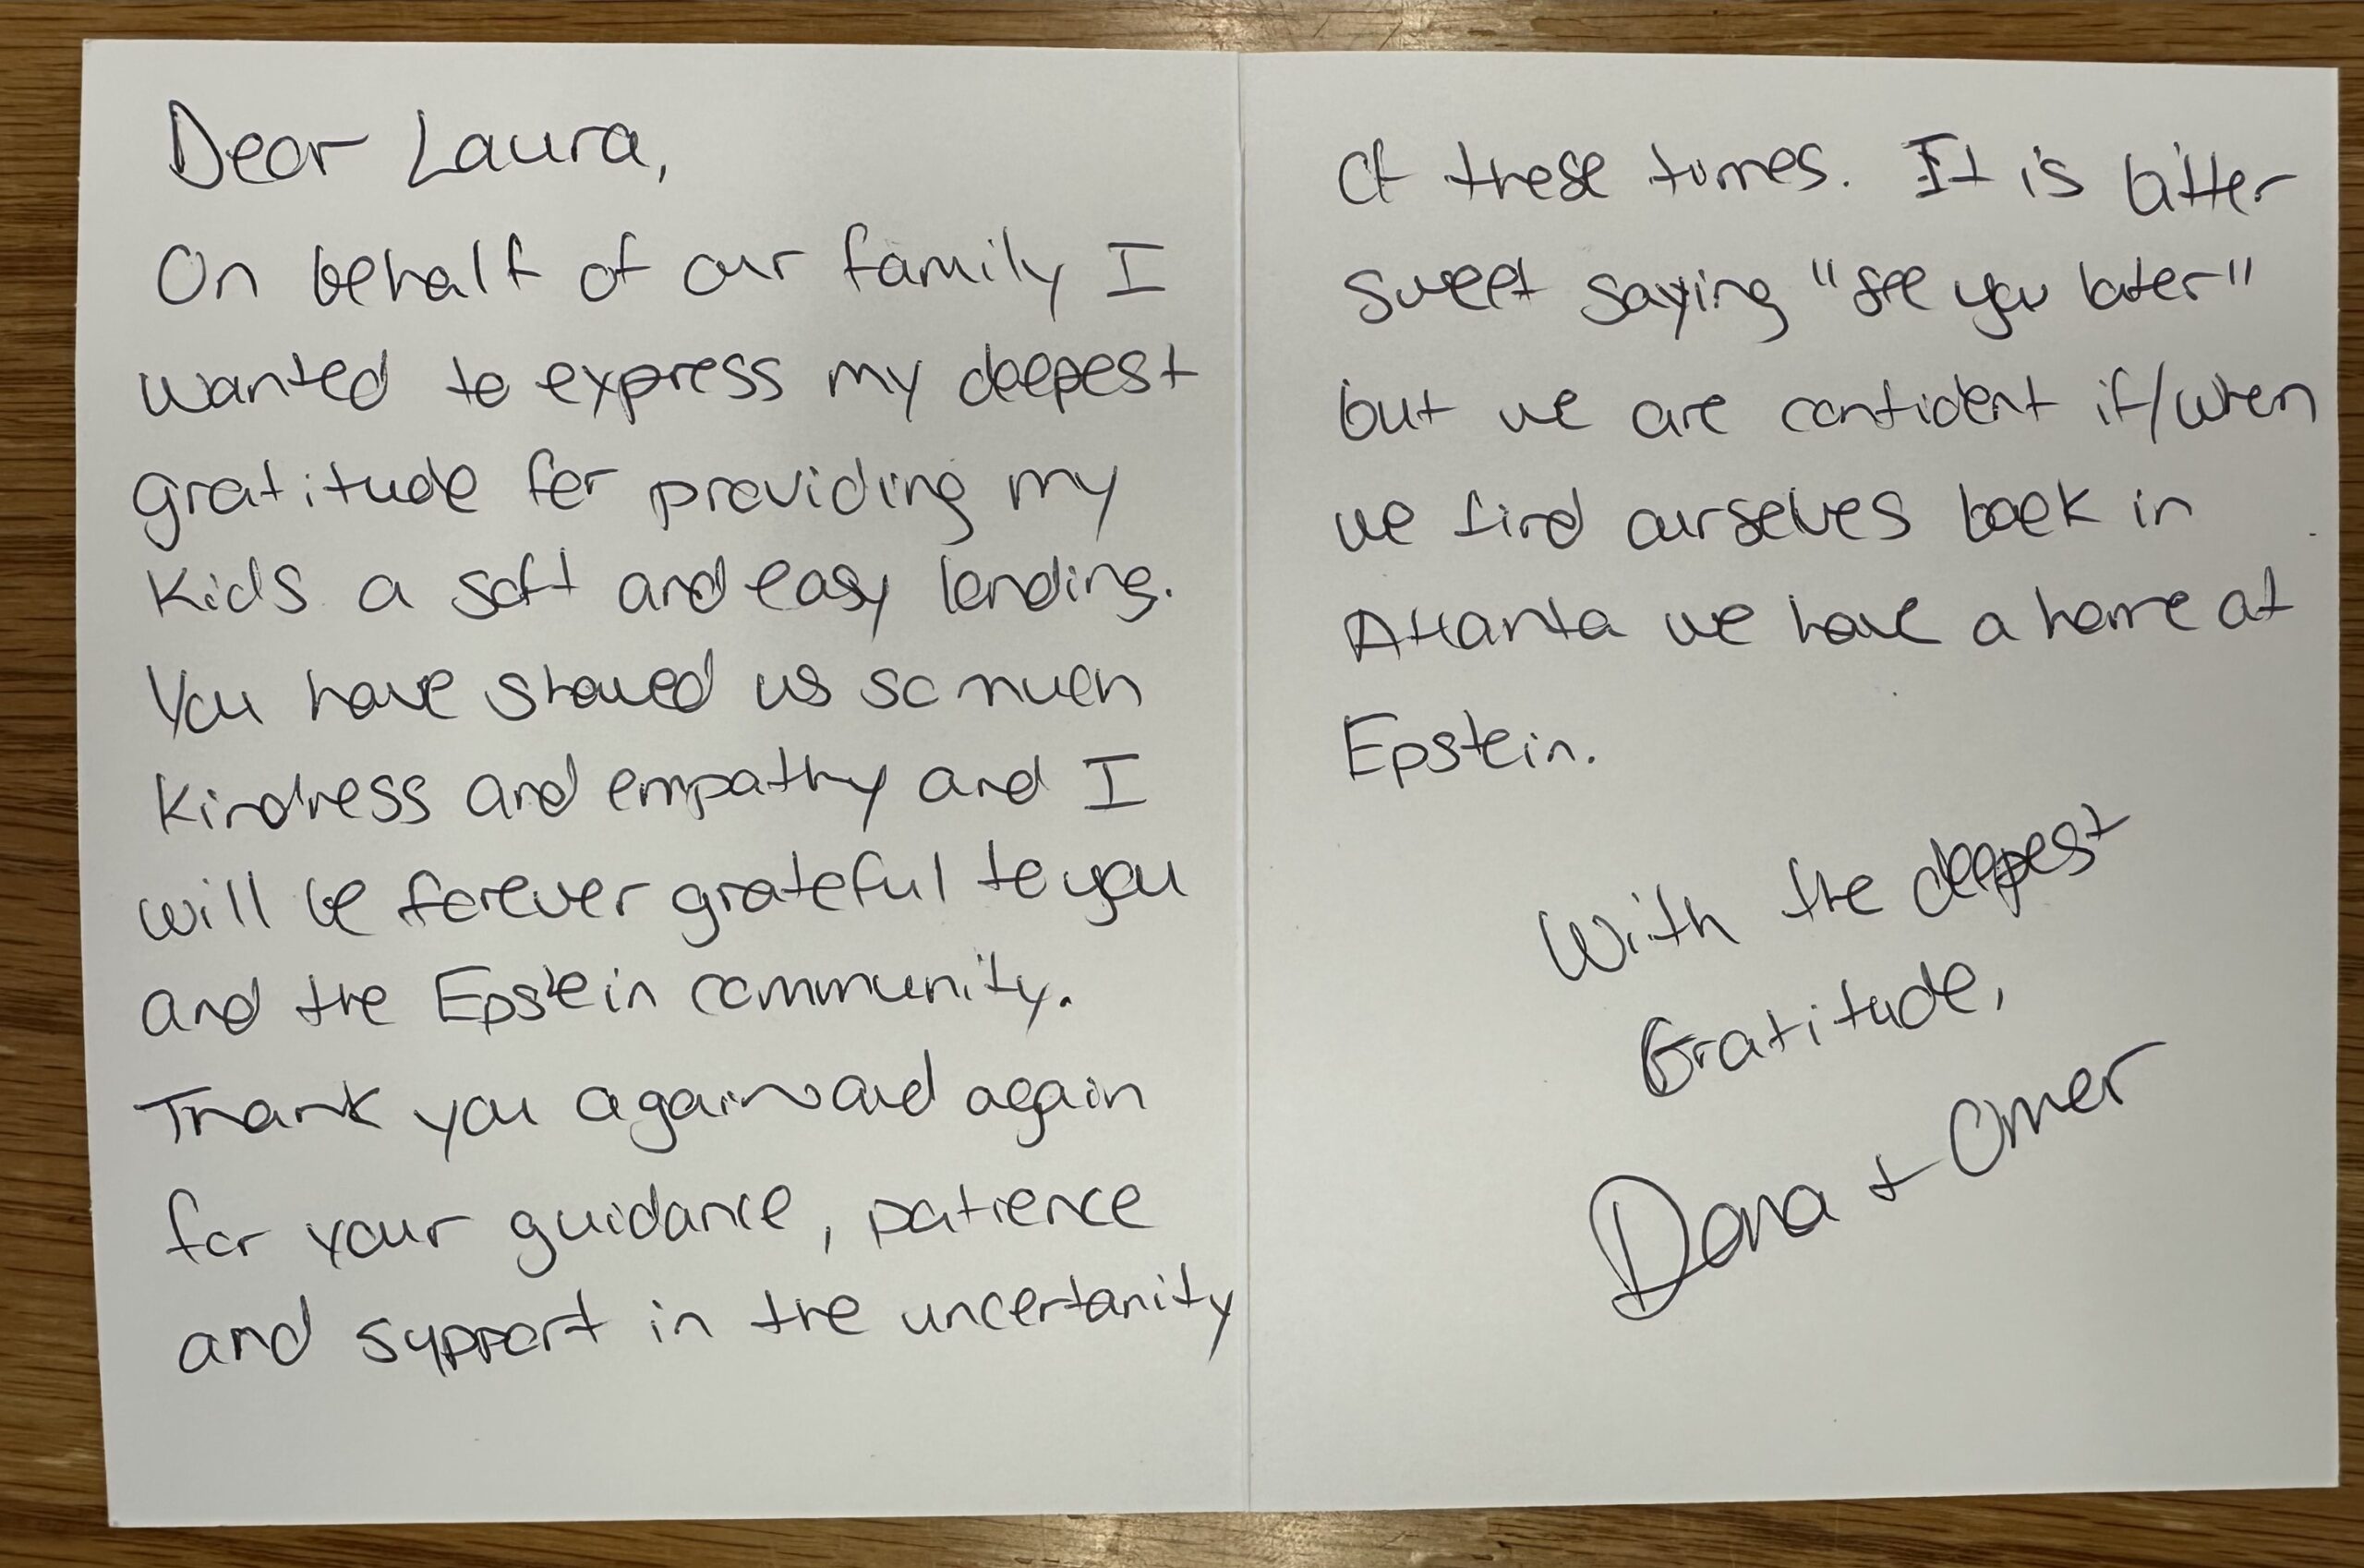 Dear Laura,
On behalf of our family I
wanted to express my deepest
gratitude for providing my
kids a soft and easy landing.
You have showed us so much
kindness and empathy and I
will be forever grateful to you
and the Epstein community.
Thank you again and again
for your guidance, patience
and support in the uncertanity
of these times. It is bitter
sweet saying "see you later"
but we are confident if/when
we find ourselves back in
Atlanta we have a home at
Epstein.
With the deepest
Gratitude,
Dana + Omer